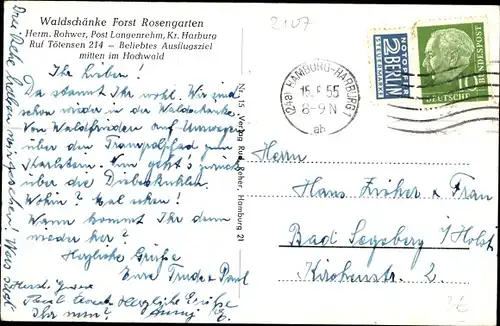 Waldschänke Forst Rosengarten
Herm. Rohwer, Post Langenrehm, Kr. Harburg
Ruf Tötensen 214 – Beliebtes Ausflugsziel
mitten im Hochwald
Ihr Lieben!
Da staunt Ihr wohl. Wir sind
schon wieder in der Waldschänke.
Von Waldfrieden auf Umwegen
über den Trampelpfad zum
Karlstein. Nun geht's zurück
über die
Wohin? Mal sehen!
Wann kommt Ihr denn
wieder her?
Herzliche Grüße
Eure Trude + Paul
Herzliche Grüße
Drei Rehe haben wir gesehen! Was sagt
Ihr nun?
Nr. 15 Verlag Rud. Reher, Hamburg 21
2107
(24a) HAMBURG-HARBURG 1
15.6.55
8-9 N
ab
NOTOPFER
2 BERLIN
STEUERMARKE
10
DEUTSCHE BUNDESPOST
Herrn
Hans + Frau
Bad Segeberg / Holst
Kirchenstr. 2.